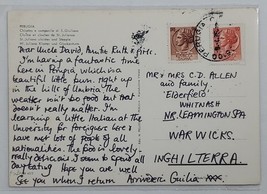 PERUGIA
Dear Uncle David, Auntie Ruth & girls.
I'm having a fantastic time
here in Perugia, which is a
beautiful little town, right up
in the hills of Umbria. The
weather isn't too good but that
doesn't really matter. I'm
learning a little Italian at the
University for foreigners here &
have met lots of people of all
nationalities. The food is lovely,
really delicious I seem to spend all day
eating. Hope you are well
See you when I return. Arrivederci Giulia xxx.
MR & MRS C.D. ALLEN
and family
Elderfield
WHITNASH
NR. LEAMINGTON SPA
WARWICKS.
INGHILTERRA.